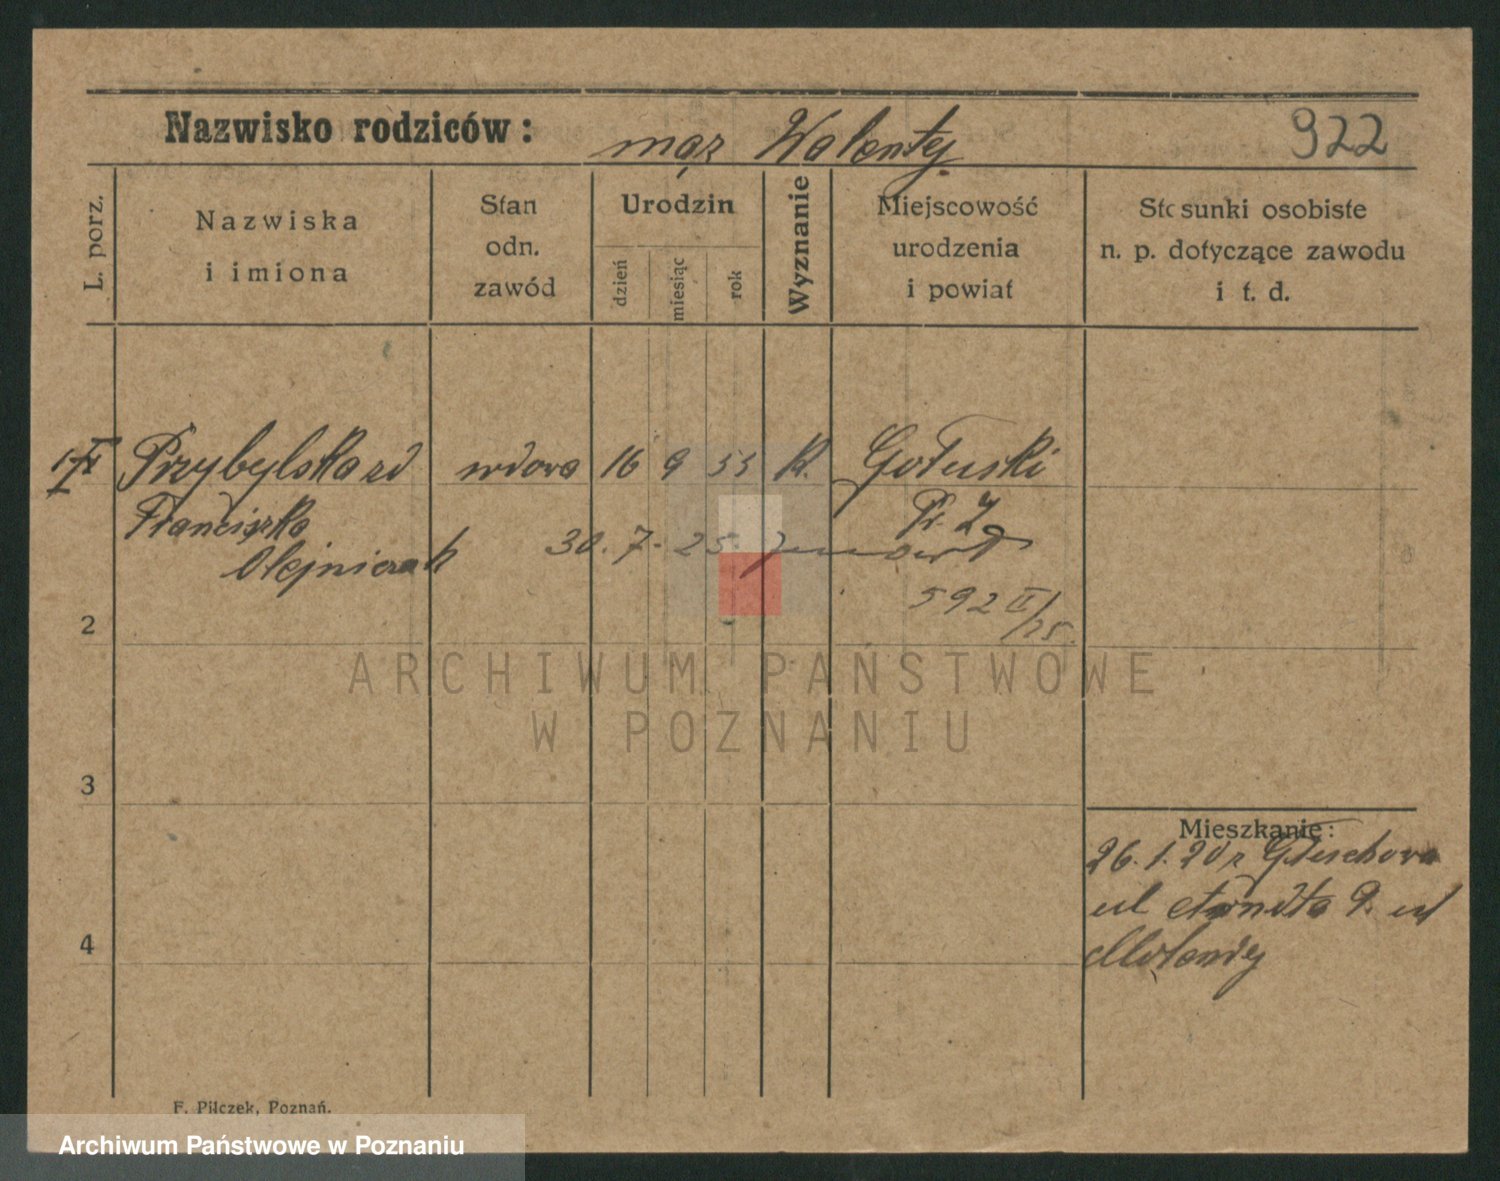 Nazwisko rodziców: mąż Walenty 922
L. porz.
Nazwiska i imiona
Stan odn. zawód
Urodzin
dzień miesiąc rok
Wyznanie
Miejscowość urodzenia i powiat
Stosunki osobiste n. p. dotyczące zawodu i t. d.
Przybylska zd wdowa 16 9 55 k. Gołuski
Franciszka Pr. Z
Olejniczak 30. 7. 25.
592 II/25.
2
3
4
Mieszkanie:
26. 1. 20 z
ul 9. ul
F. Pilczek, Poznań.
ARCHIWUM PAŃSTWOWE
W POZNANIU
Archiwum Państwowe w Poznaniu